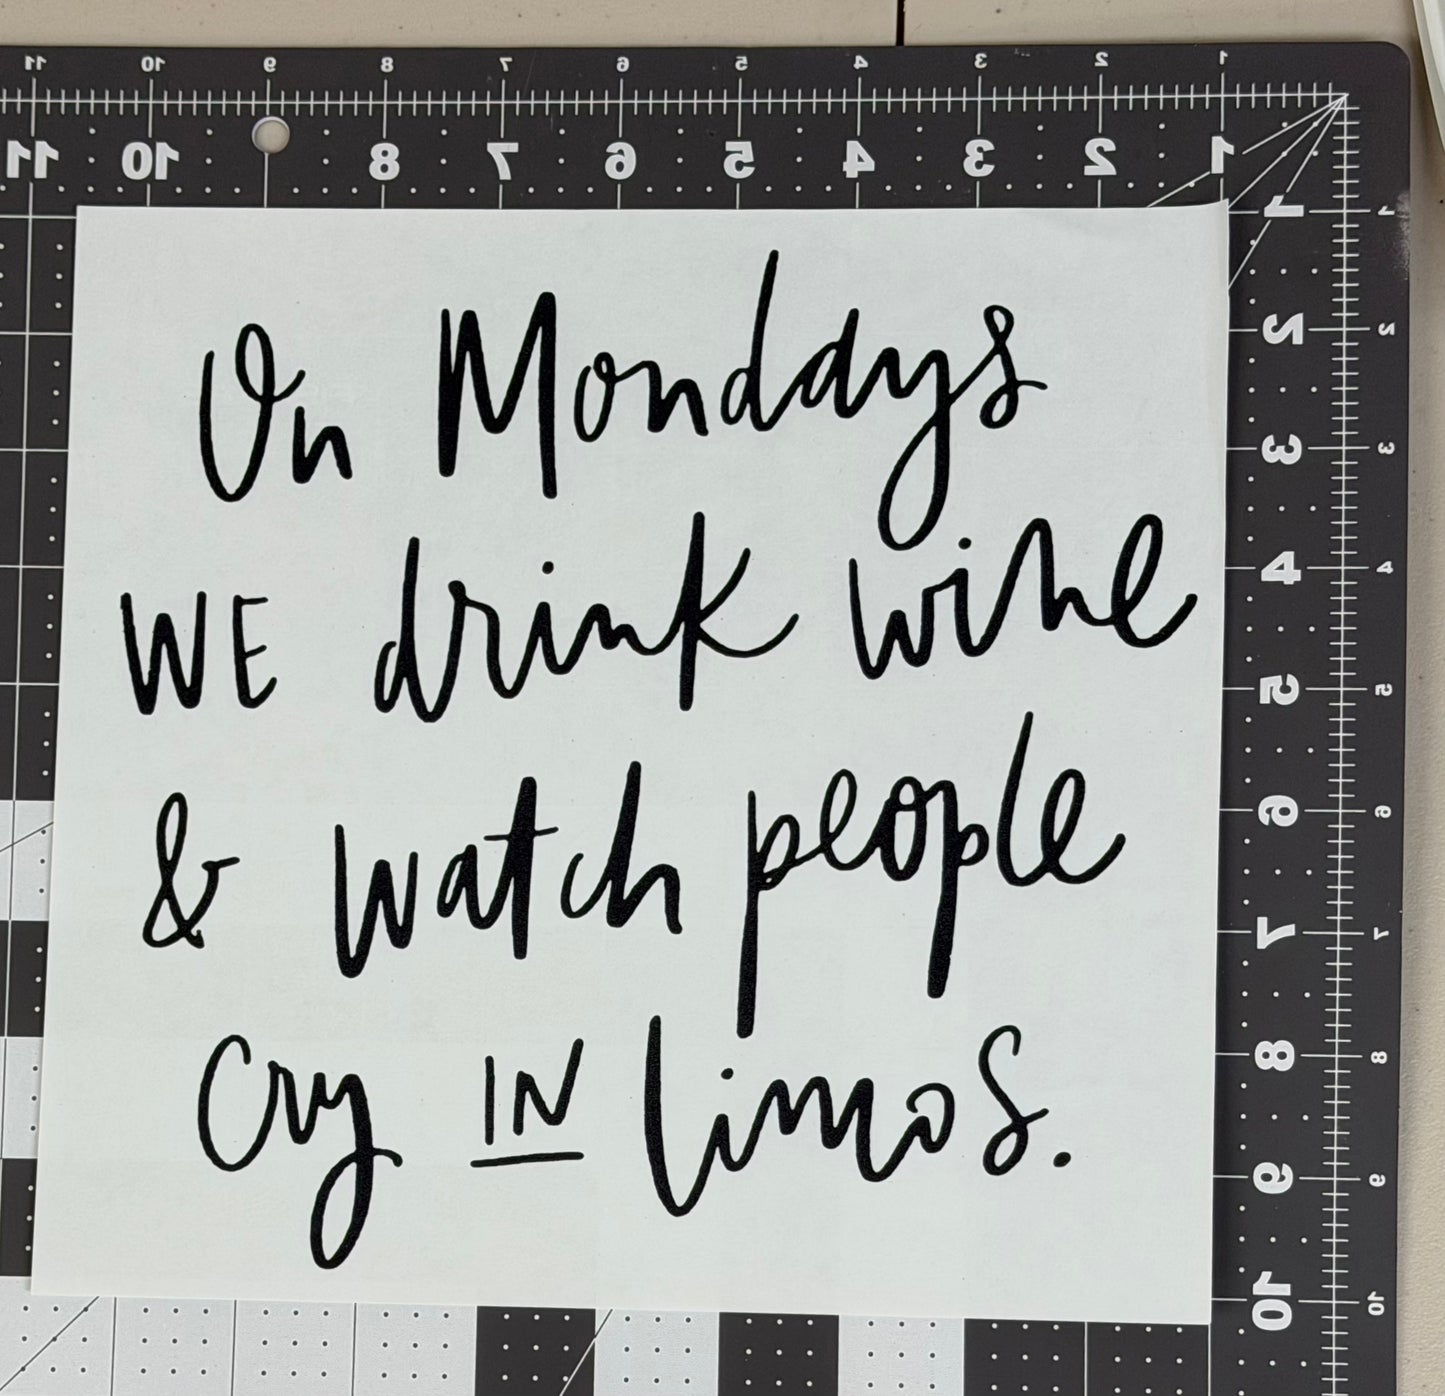 11 10 9 8 7 6 5 4 3 2 1
11 10 8 7 6 5 4 3 2 1
On Mondays
WE drink wine
& watch people
cry IN limos.
1 1
2 2
3 3
4 4
5 5
6 6
7 7
8 8
9 9
10 10